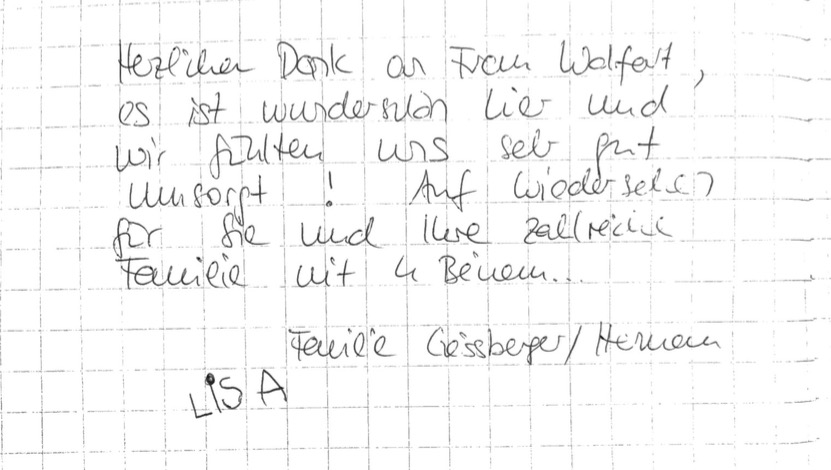 Herzlichen Dank an Frau Wolfert,
es ist wunderschön hier und
wir fühlten uns sehr gut
umsorgt ! Auf Wiedersehen
für Sie und Ihre zahlreiche
Familie mit 4 Beinen...
Familie Geissberger/Hermann
LISA